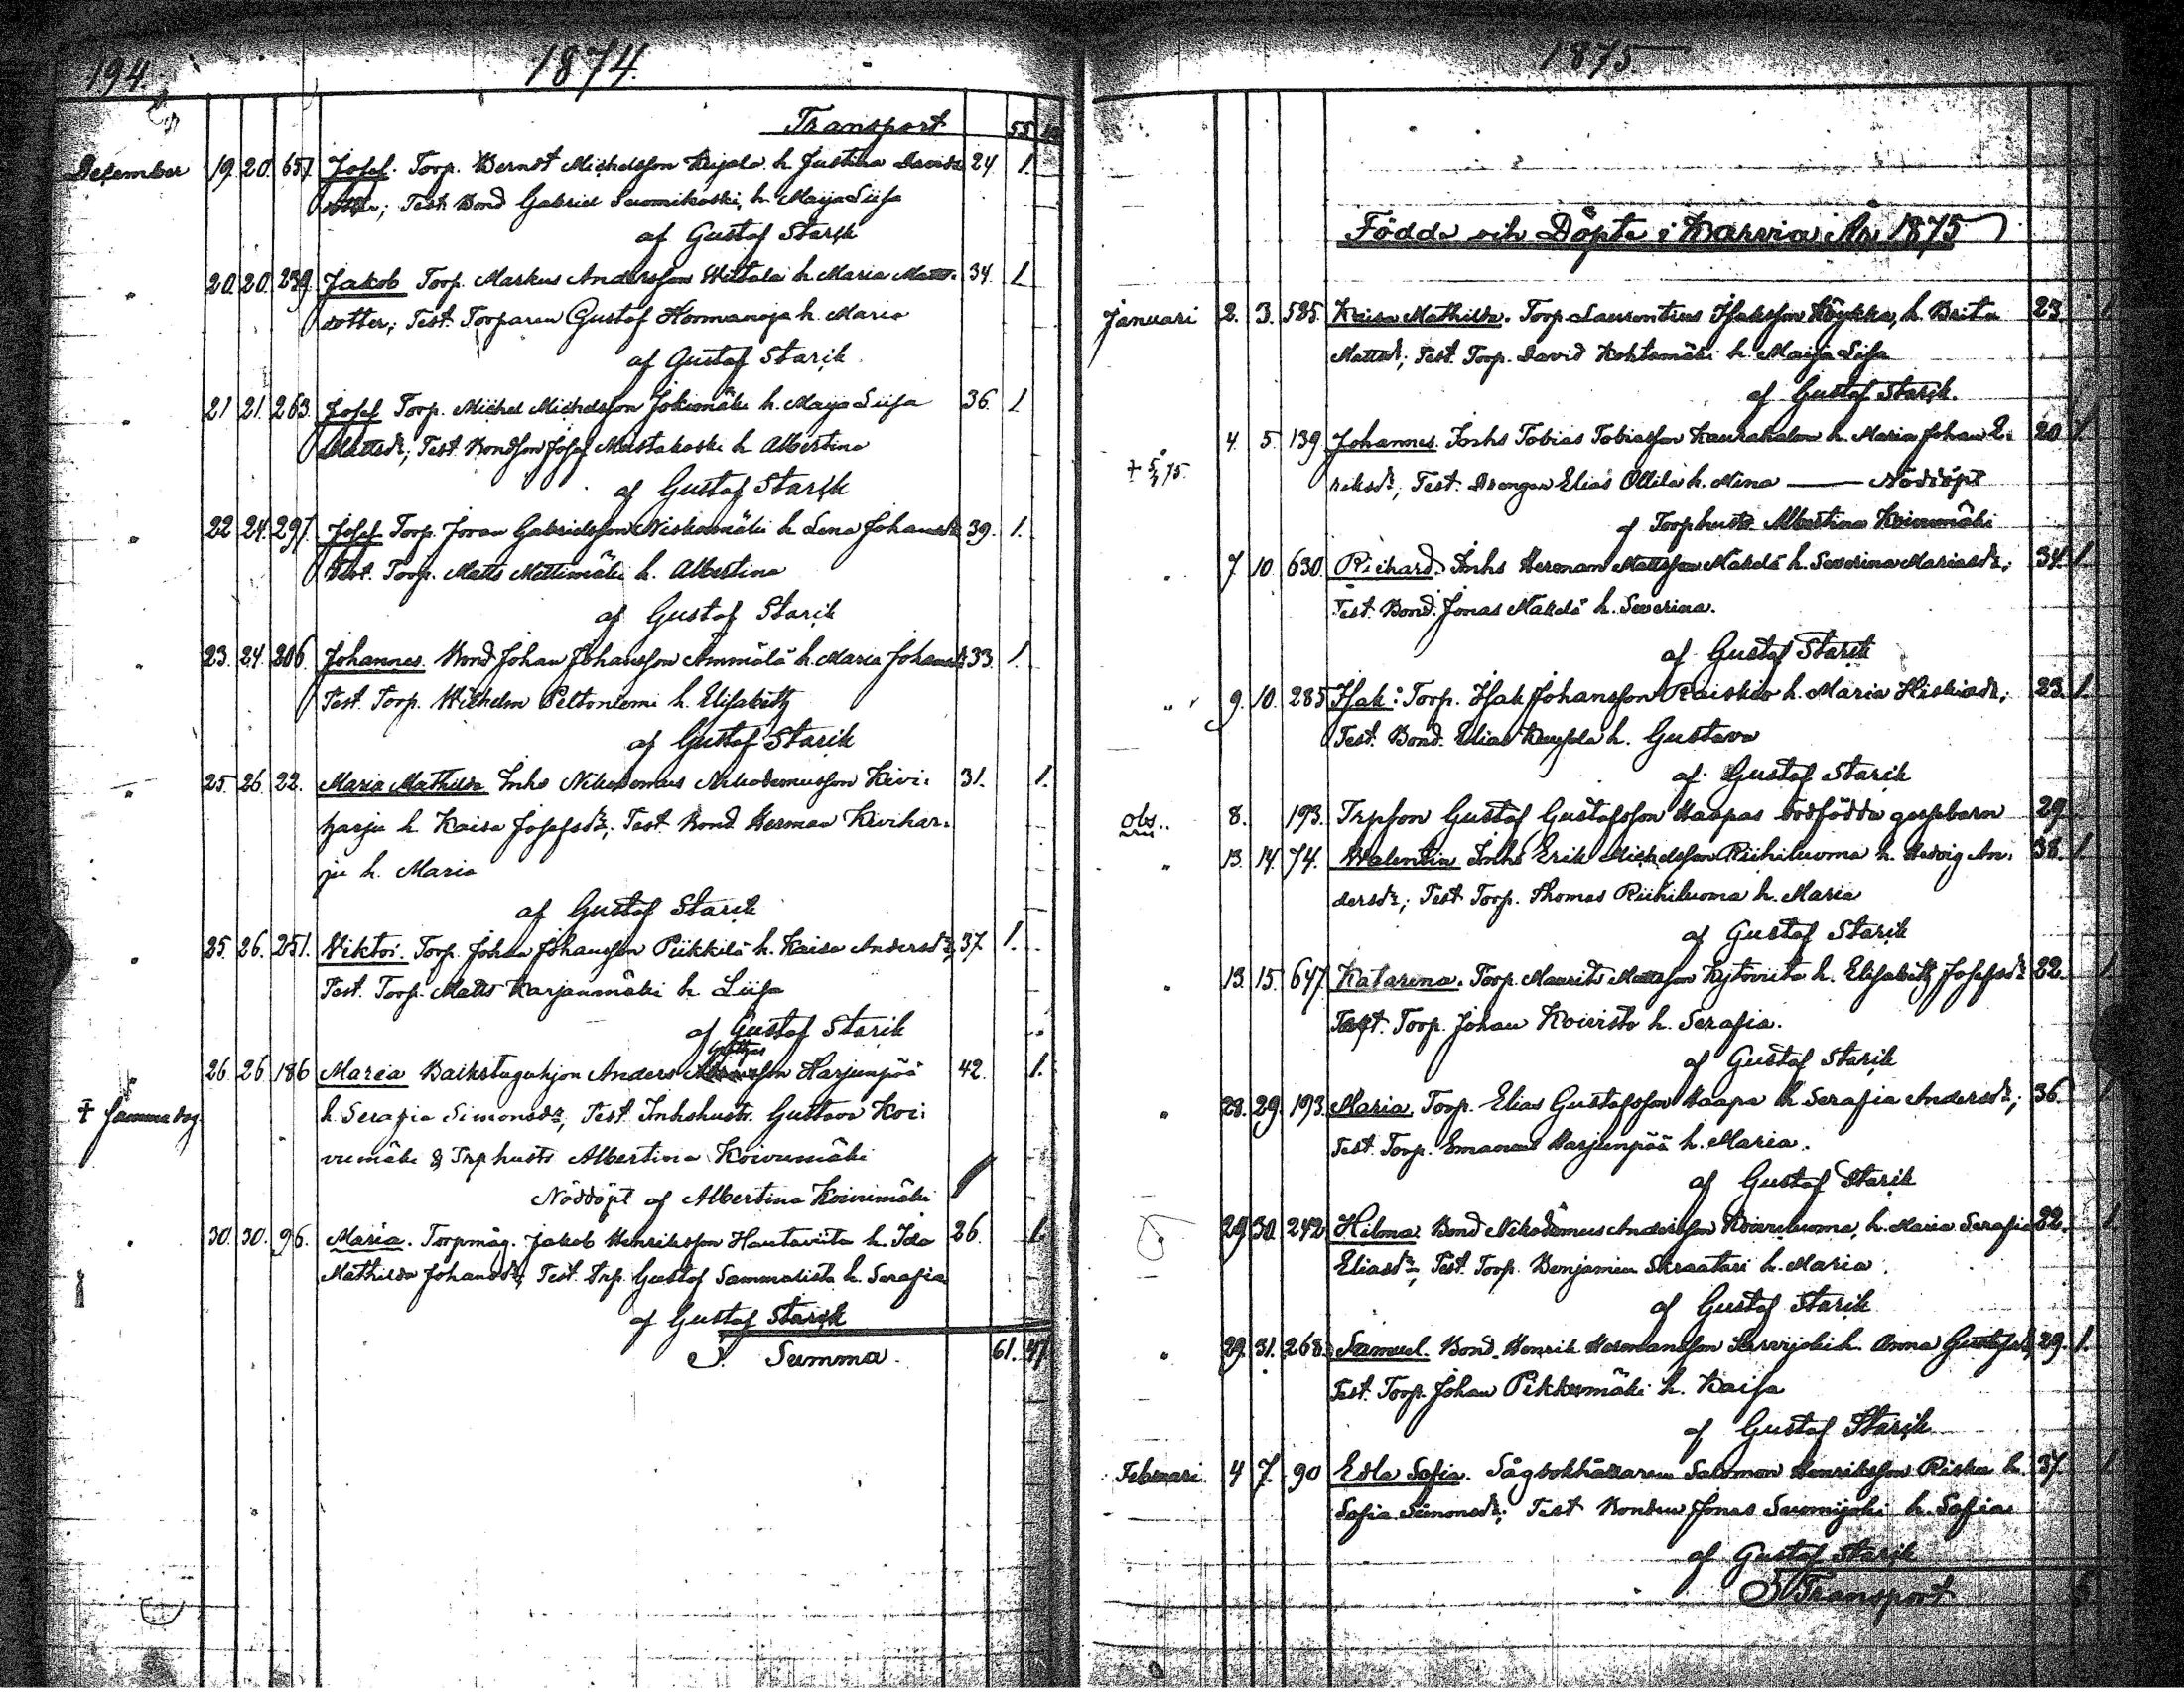 194.
1874.
Transport 55
December 19. 20. 657. Josef. Torp. Berndt Michelsson h. Justina Davids 24. 1.
dotter; Test. Bond Gabriel Suomikoski, h. Maija Liisa
af Gustaf Starck
" 20. 20. 239. Jakob Torp. Markus Andersson h. Maria Matts- 34. 1
dotter; Test. Torparen Gustaf Hormanoja h. Maria
af Gustaf Starck.
" 21 21. 263. Josef Torp. Michel Michelsson Jokimäki h. Maija Liisa 36. 1
Mattsdr; Test. Bondson Josef Mustakoski h. Albertina
af Gustaf Starck
" 22 24. 297. Josef Torp. Joran Gabrielsson Niskanmäki h Lena Johansdr 39. 1.
Test. Torp. Matts Mettimäki h. Albertina
af Gustaf Starck
" 23. 24. 206. Johannes. Bond Johan Johansson Ämmälä h. Maria Johansdr 33. 1.
Test. Torp. Wilhelm Peltoniemi h. Elisabeth
af Gustaf Starck
" 25. 26. 22. Maria Mathilda Inhs Nikodemus Nikodemusson Kivi- 31. 1.
harju h. Kaisa Josefsdr; Test. Bond. Herman Kivihar-
ju h. Maria
af Gustaf Starck
" 25. 26. 251. Viktor. Torp. Johan Johansson Piikkilä h. Kaisa Andersdr, 37 1.
Test. Torp. Matts Karjanmäki h. Liisa
af Gustaf Starck
" 26. 26. 186 Maria Backstuguhjon Anders Harjunpää 42. 1.
† samma dag. h. Serafia Simonsdr, Test. Inhshustr. Gustava Koi-
vumäki & Trphustr Albertina Koivumäki
Nöddöpt af Albertina Koivumäki
" 30. 30. 96. Maria. Torpmåg. Jakob Henriksson Hautaviita h. Ida 26. 1.
Mathilda Johansdr, Test. Trp. Gustaf Sammalisto h. Serafia
af Gustaf Starck
S. Summa. 61. 47
1875.
Födda och Döpta i Karvia År 1875
Januari 2. 3. 585. Kaisa Mathilda. Torp Laurentius Isaksson Köykkä, h. Brita 23. 1
Mattsdr; Test. Torp. David Kohtamäki h. Maija Liisa
af Gustaf Starck.
4. 5. 139 Johannes. Inhs Tobias Tobiasson h. Maria Johan E- 20 1.
riksdr; Test. Drengen Elias Ollila h. Mina — Nöddöpt
af Torphustr Albertina Koivumäki
" 7. 10. 630. Richard. Inhs Herman Mattsson Mäkelä h. Severina Mariasdr; 34. 1.
Test. Bond. Jonas Mäkelä h. Severina.
af Gustaf Starck
" 9. 10. 285 Isak: Torp. Isak Johansson Raiskio h. Maria Hiskiasdr; 23. 1.
Test. Bond. Elias h. Gustava
af Gustaf Starck
obs. 8. 193. Trpson Gustaf Gustafsson Haapas dödfödda gossebarn 29.
" 13. 14. 74. Valentin Inhs Erik Michelsson Riihiluoma h. Hedvig An- 38. 1.
dersdr; Test Torp. Thomas Riihiluoma h. Maria
af Gustaf Starck
" 13. 15. 647 Katarina. Torp. Maurits Mattsson Kytöviita h. Elisabeth Josefsdr 22. 1
Test. Torp. Johan Koivisto h. Serafia.
af Gustaf Starck
" 28. 29. 193. Maria. Torp. Elias Gustafsson Haapa h Serafia Andersdr; 36. 1
Test. Torp. Emanuel Harjunpää h. Maria.
af Gustaf Starck
29. 30. 242 Hilma Bond Nikodemus Andersson Koivuluoma, h. Maria Serafia 32. 1.
Eliasdr, Test. Torp. Benjamin Skraatari h. Maria.
af Gustaf Starck
" 29. 31. 268. Samuel. Bond. Henrik Hermansson h. Anna Gustafsdr, 29. 1.
Test. Torp. Johan Pikkumäki h. Kaisa
af Gustaf Starck
Februari 4 7. 90 Edla Sofia. Sågbokhållaren Salomon Henriksson Riska h. 37. 1.
Sofia Simonsdr; Test Bonden Jonas Suomijoki h. Sofia
af Gustaf Starck
S Transport 5